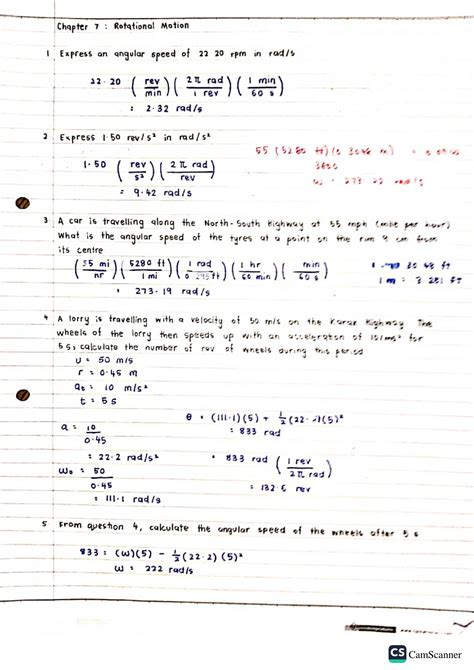 Chapter 7 : Rotational Motion
1 Express an angular speed of 22.20 rpm in rad/s
22.20 (rev/min) (2π rad/1 rev) (1 min/60 s)
= 2.32 rad/s
2 Express 1.50 rev/s² in rad/s²
55 (5280 ft)(0.3048 m) =
3600
1.50 (rev/s²) (2π rad/rev)
= 9.42 rad/s
3 A car is travelling along the North-South Highway at 55 mph (mile per hour)
What is the angular speed of the tyres at a point on the rim 9 cm from
its centre
(55 mi/hr) (5280 ft/1 mi) (1 rad/ft) (1 hr/60 min) (min/60 s)
= 273.19 rad/s
1 m = 3.281 ft
4 A lorry is travelling with a velocity of 50 m/s on the Karak Highway The
wheels of the lorry then speeds up with an acceleration of 10 m/s² for
5s, calculate the number of rev of wheels during this period
u = 50 m/s
r = 0.45 m
at = 10 m/s²
t = 5s
θ = (111.1)(5) + ½(22.2)(5)²
= 833 rad
α = 10/0.45
= 22.2 rad/s²
= 833 rad (1 rev/2π rad)
ω₀ = 50/0.45
= 132.6 rev
= 111.1 rad/s
5 From question 4, calculate the angular speed of the wheels after 5 s
833 = (ω)(5) - ½(22.2)(5)²
ω = 222 rad/s
CS CamScanner